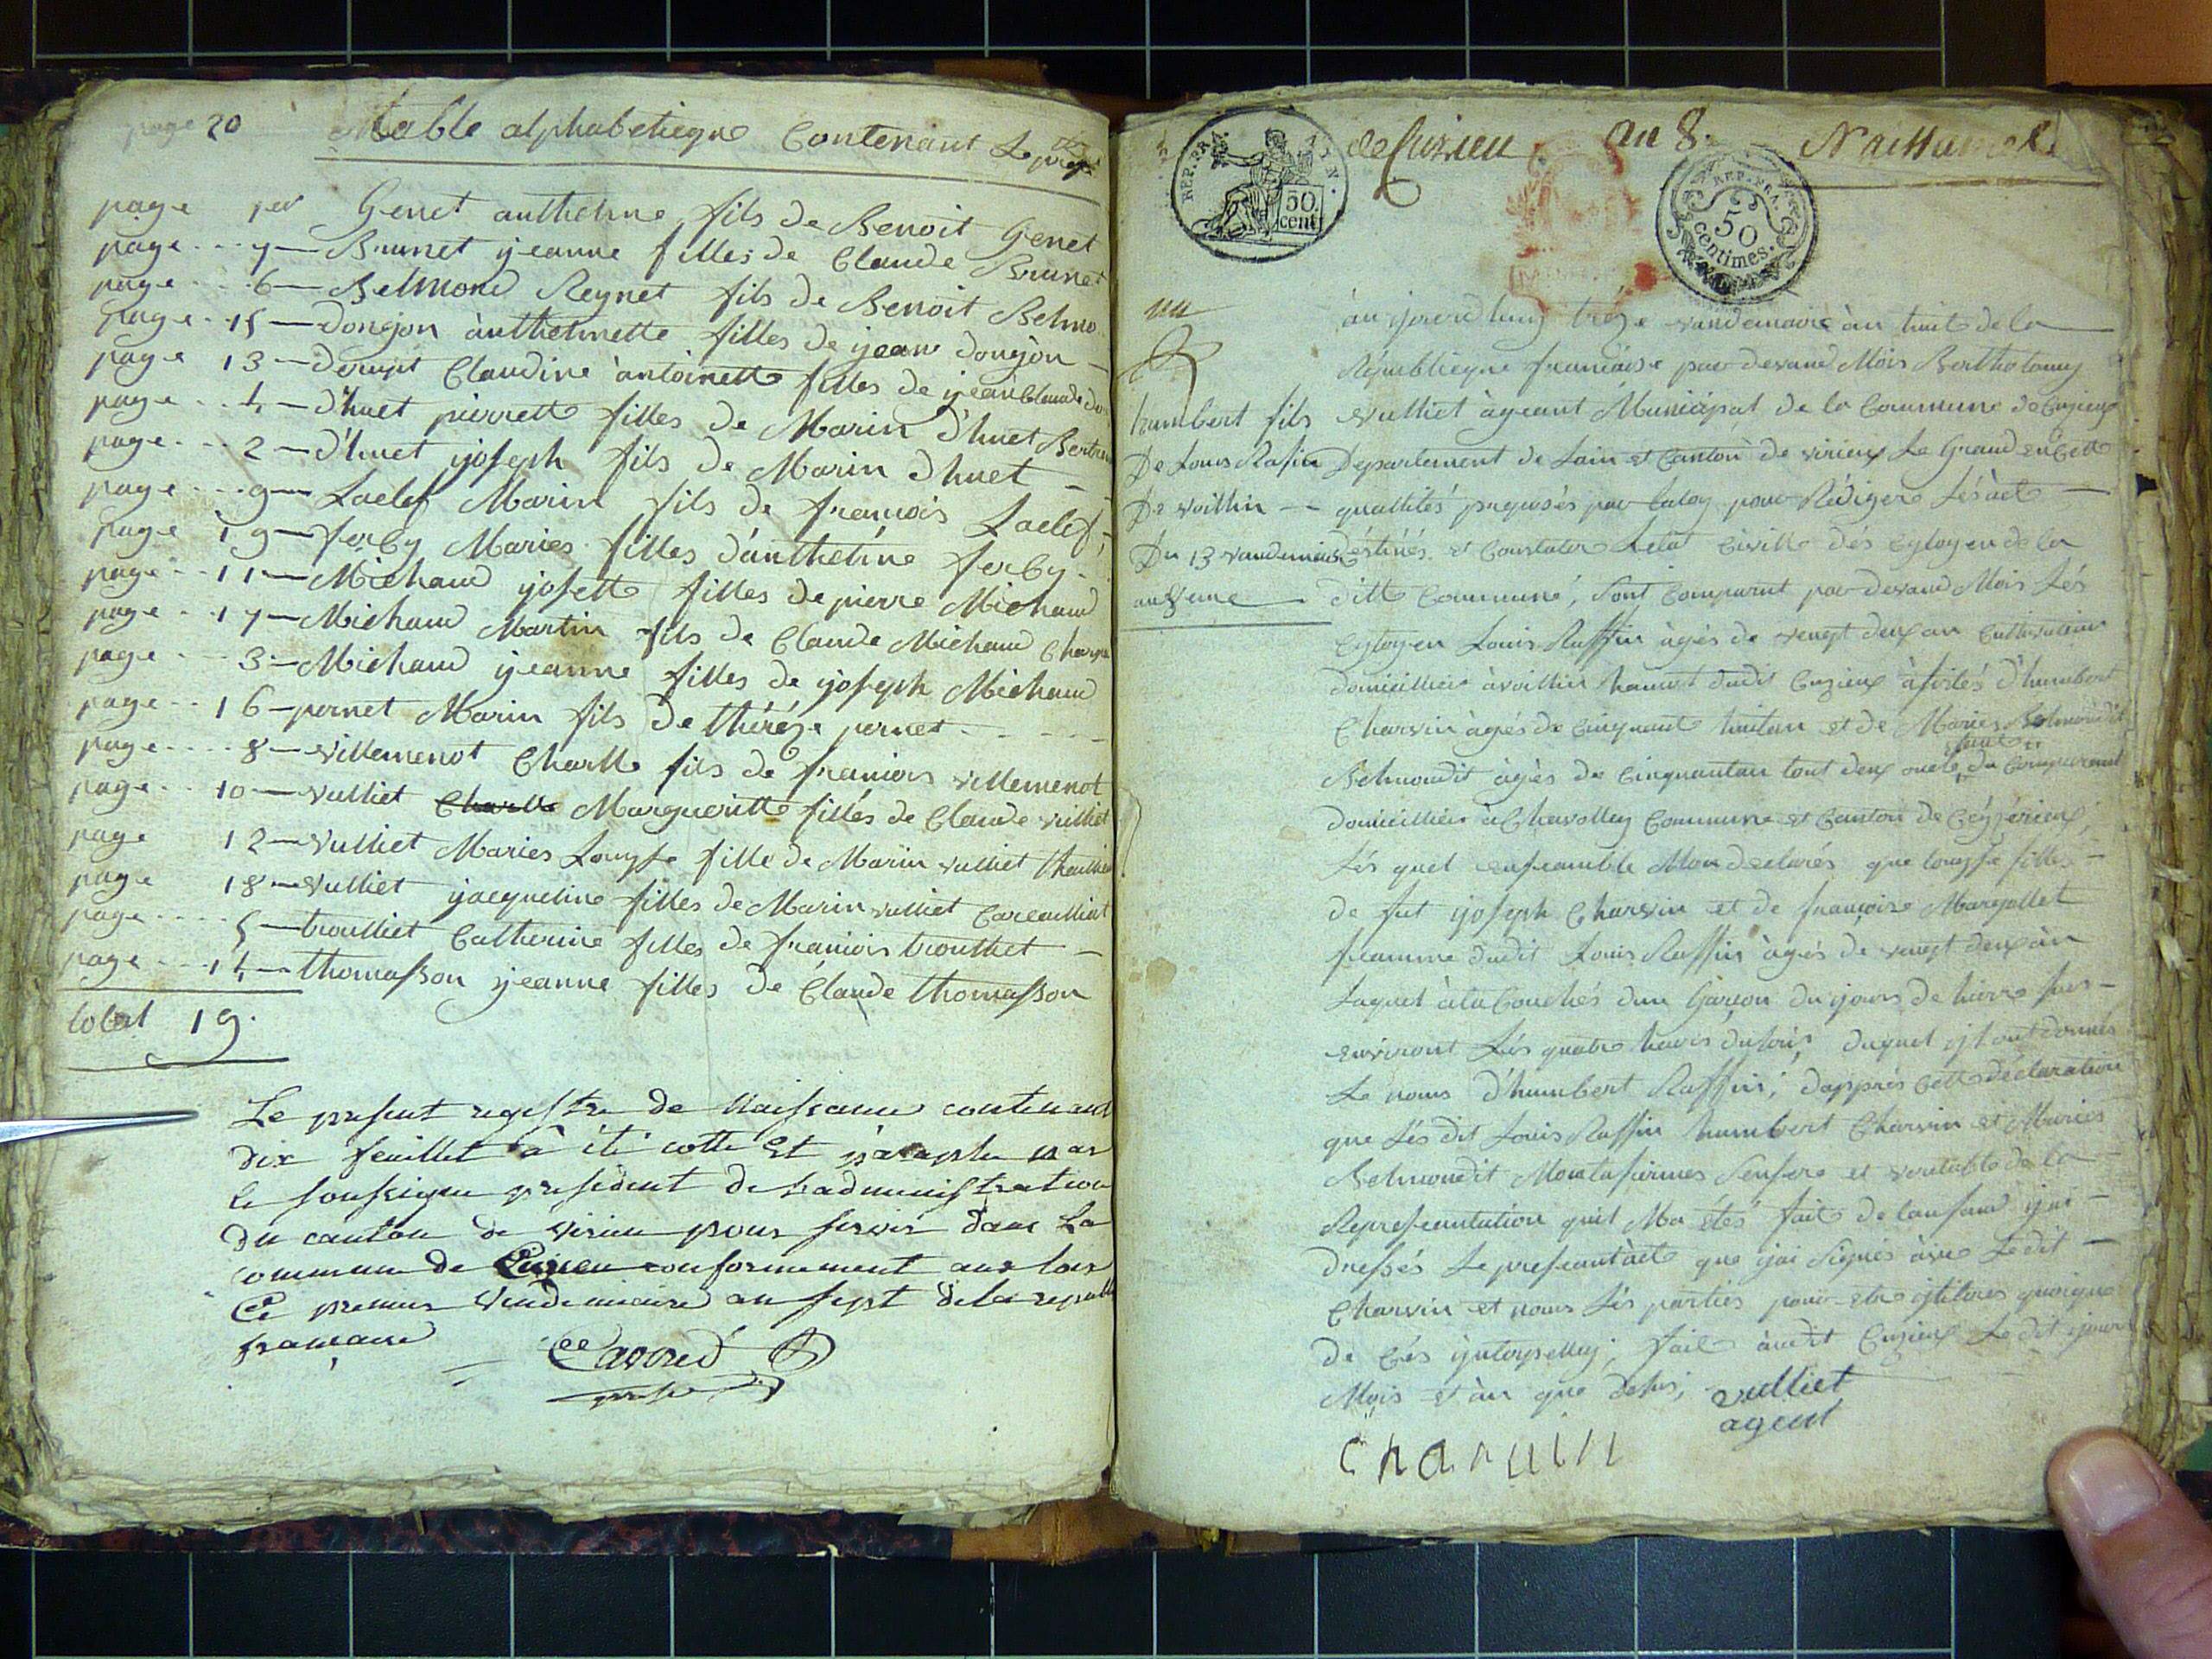 page 20 table alphabetieque Contenant Le
page per Genet anthelme fils de Benoit Genet
page 7 Brunet yjeanne filles de Claude Brunet
page 6 Belmond Reynet fils de Benoit Belmo
page 15 donjon ànthelmette filles de yjean donjon
page 13 Claudine àntoinette filles de yjean Claude
page 4 d'huet pierrette filles de Marin d'huet
page 2 d'huet yjoseph fils de Marin d'huet
page 9 Laclef Marin fils de francois Laclef
page 19 ferby Maries filles d'ànthelme ferby
page 11 Michaud yjosette filles de pierre Michaud
page 17 Michaud Martin fils de Claude Michaud
page 3 Michaud yjeanne filles de yjoseph Michaud
page 16 pernet Marin fils de théréze pernet
page 8 villemenot Charlle fils de francois villemenot
page 10 vulliet Charlle Margueritte fillés de Claude vulliet
page 12 vulliet Maries Louysse fille de Marin vulliet
page 18 vulliet yjacqueline filles de Marin vulliet
page 5 troulliet Catherine filles de francois troulliet
page 14 thomasson yjeanne filles de Claude thomasson
total 19.
Le present registre de Naissance contenant
dix feuillet à été cotte et paraphe par
le soussigne president de l'administration
du canton de virieu pour servir dans La
commune de Cuzieu conformement aux lois
Ce premier vendemiaire an sept de la repub
francaise
REP. FRA.
50 cent
de Cuzieu an 8.
REP. FRA.
50 centimes.
un
humbert fils
De Louis Rafin
De voillin
Du 13 vandemiaire
an 8eme
àujourdhuy treze vandemaire àn huit de la
Républieque francaise par devand Mois Bertholomy
vulliet àgeant Municipal de la Commune de Cuzieux
Departement de Lain et Canton de virieux Le Grand en Cette
quallités preposés par laloy pour Rédigere Lés àct
déstinés et Constater Letat Civille dés Cytoyen de la
ditte Commune, sont Comparut par devand Mois Lés
Cytoyen Louis Raffin àgés de vengt deux an Cultivateur
domicillier àvoillin hameut dudit Cuzieux d'humbert
Charvin àgés de Cinquante huitan et de Maries Belmondit
Belmondit àgés de Cinquantan tout deux du Comparant
domicillier à Chavolley Commune et Canton de Ceyzérieux,
Lés quel ensemble Mon declarés que louysse filles
de fut yjoseph Charvin et de francoise Marjollet
famme dudit Louis Raffin àgés de vengt deux àn
Laquel àla Couchés dun Garcon du yjours de hierre sur
environt Lés quatre heures du soir, duquel yl ont donnés
Le nom d'humbert Raffin, dapprés Cette déclaration
que Lés dit Louis Raffin humbert Charvin et Maries
Belmondit
Representation quil Ma étés fait de lanfant yjai
dressés Le present àct que yjai Signés àvec Ledit
Charvin et nom Lés parties pour etre yliteres quoique
de Cés fait àudit Cuzieux Ledit yjour
Mois et àn que desus, vulliet
agent
charvin